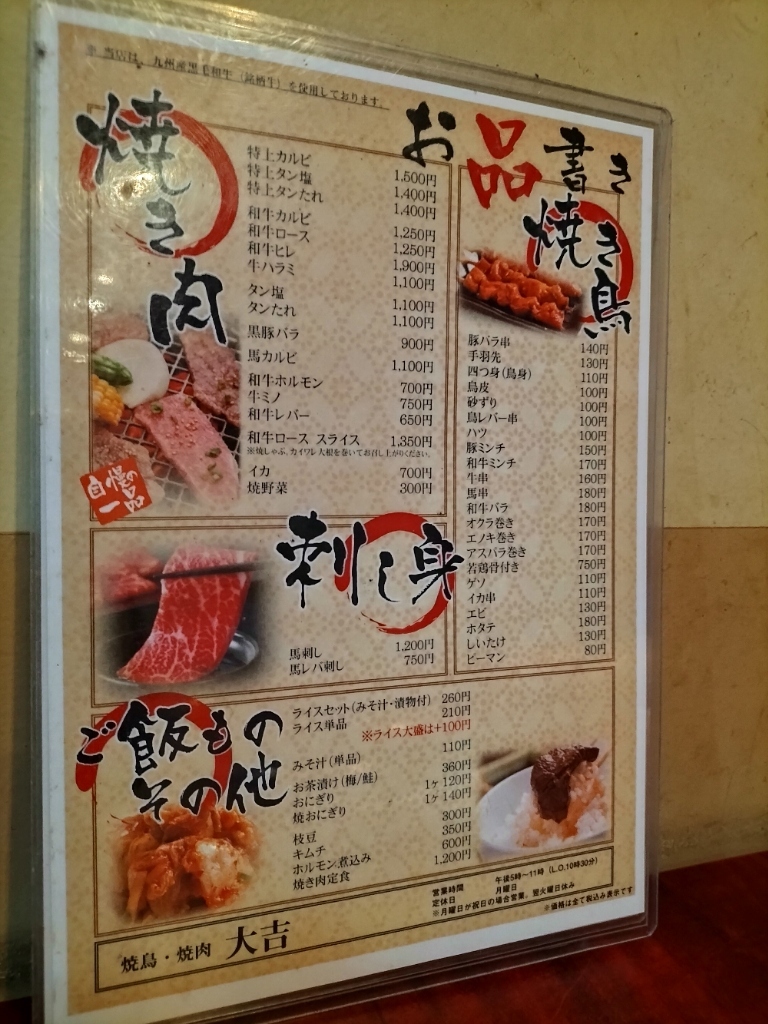 ※ 当店は、九州産黒毛和牛(銘柄牛)を使用しております。
お品書き
焼き肉
特上カルビ 1,500円
特上タン塩 1,400円
特上タンたれ 1,400円
和牛カルビ 1,250円
和牛ロース 1,250円
和牛ヒレ 1,900円
牛ハラミ 1,100円
タン塩 1,100円
タンたれ 1,100円
黒豚バラ 900円
馬カルビ 1,100円
和牛ホルモン 700円
牛ミノ 750円
和牛レバー 650円
和牛ロース スライス 1,350円
※焼しゃぶ、カイワレ大根を巻いてお召し上がりください。
イカ 700円
焼野菜 300円
自慢の一品
焼き鳥
豚バラ串 140円
手羽先 130円
四つ身(鳥身) 110円
鳥皮 100円
砂ずり 100円
鳥レバー串 100円
ハツ 100円
豚ミンチ 150円
和牛ミンチ 170円
牛串 160円
馬串 180円
和牛バラ 180円
オクラ巻き 170円
エノキ巻き 170円
アスパラ巻き 170円
若鶏骨付き 750円
ゲソ 110円
イカ串 110円
エビ 130円
ホタテ 180円
しいたけ 130円
ピーマン 80円
刺し身
馬刺し 1,200円
馬レバ刺し 750円
ご飯もの
その他
ライスセット(みそ汁・漬物付) 260円
ライス単品 210円
※ライス大盛は+100円
みそ汁(単品) 110円
お茶漬け(梅/鮭) 360円
おにぎり 1ヶ 120円
焼おにぎり 1ヶ 140円
枝豆 300円
キムチ 350円
ホルモン煮込み 600円
焼き肉定食 1,200円
営業時間 午後5時〜11時(L.O.10時30分)
定休日 月曜日
※月曜日が祝日の場合営業。翌火曜日休み
※価格は全て税込み表示です
焼鳥・焼肉 大吉